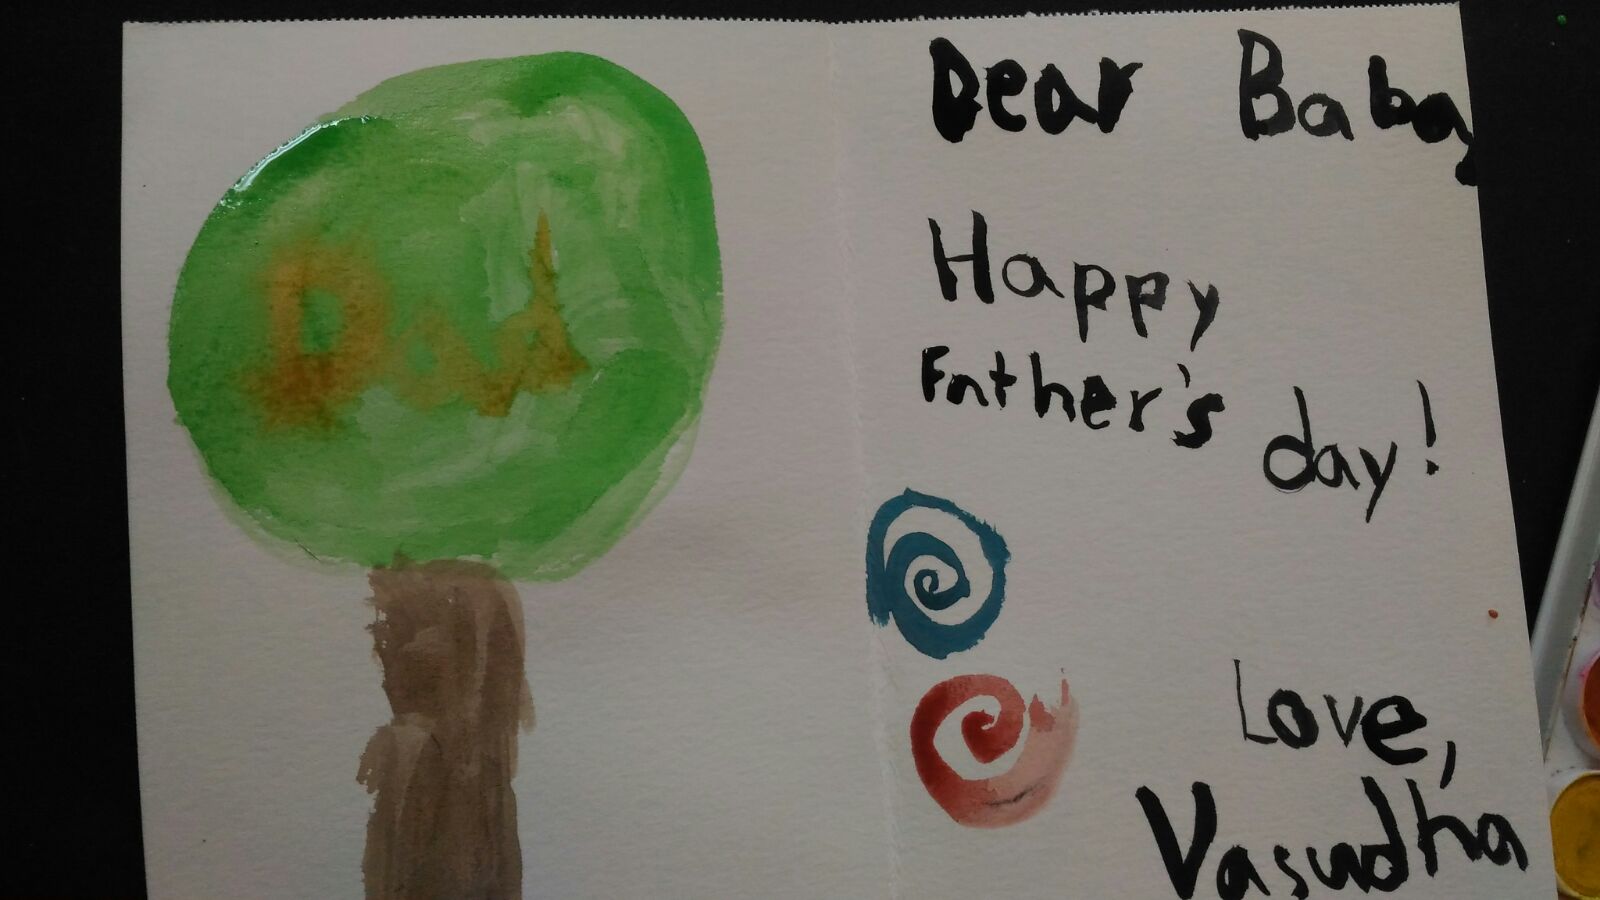 Dad
Dear Baba,
Happy
Father's
day!
Love,
Vasudha